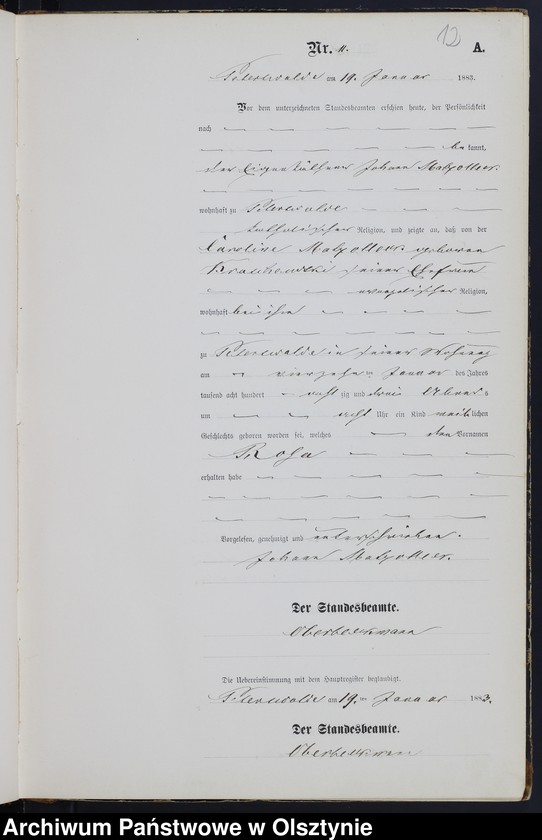 12
Nr. 11. A.
Peterswalde am 19. Januar 1883.
Vor dem unterzeichneten Standesbeamten erschien heute, der Persönlichkeit
nach
be kannt,
der Eigenthümer Johann
wohnhaft zu Peterswalde
katholischer Religion, und zeigte an, daß von der
Caroline geborenen
seiner Ehefrau
evangelischer Religion,
wohnhaft bei ihm
zu Peterswalde in seiner Wohnung
am vierzehn Januar des Jahres
tausend acht hundert acht zig und drei Abends
um acht Uhr ein Kind weiblichen
Geschlechts geboren worden sei, welches den Vornamen
Rosa
erhalten habe
Vorgelesen, genehmigt und unterschrieben.
Johann
Der Standesbeamte.
Die Uebereinstimmung mit dem Hauptregister beglaubigt.
Peterswalde am 19. ten Januar 1883.
Der Standesbeamte.
Archiwum Państwowe w Olsztynie